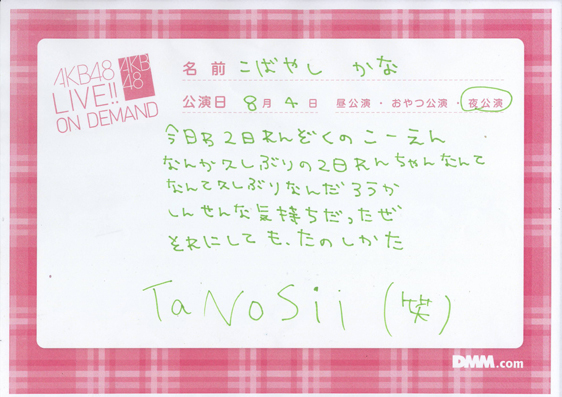 AKB48
LIVE!!
ON DEMAND
AKB
48
名前 こばやし かな
公演日 8月4日 昼公演・おやつ公演・夜公演
今日ゎ2日れんぞくのこーえん
なんか久しぶりの2日れんちゃんなんて
なんて久しぶりなんだろうか
しんせんな気持ちだったぜ
それにしても、たのしかた
TaNoSii (笑)
DMM.com